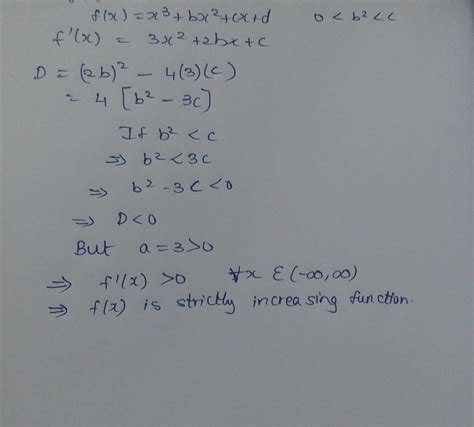 f(x) = x³ + bx² + cx + d 0 < b² < c
f'(x) = 3x² + 2bx + c
D = (2b)² - 4(3)(c)
= 4 [b² - 3c]
If b² < c
⇒ b² < 3c
⇒ b² - 3c < 0
⇒ D < 0
But a = 3 > 0
⇒ f'(x) > 0 ∀x ε (-∞, ∞)
⇒ f(x) is strictly increasing function.